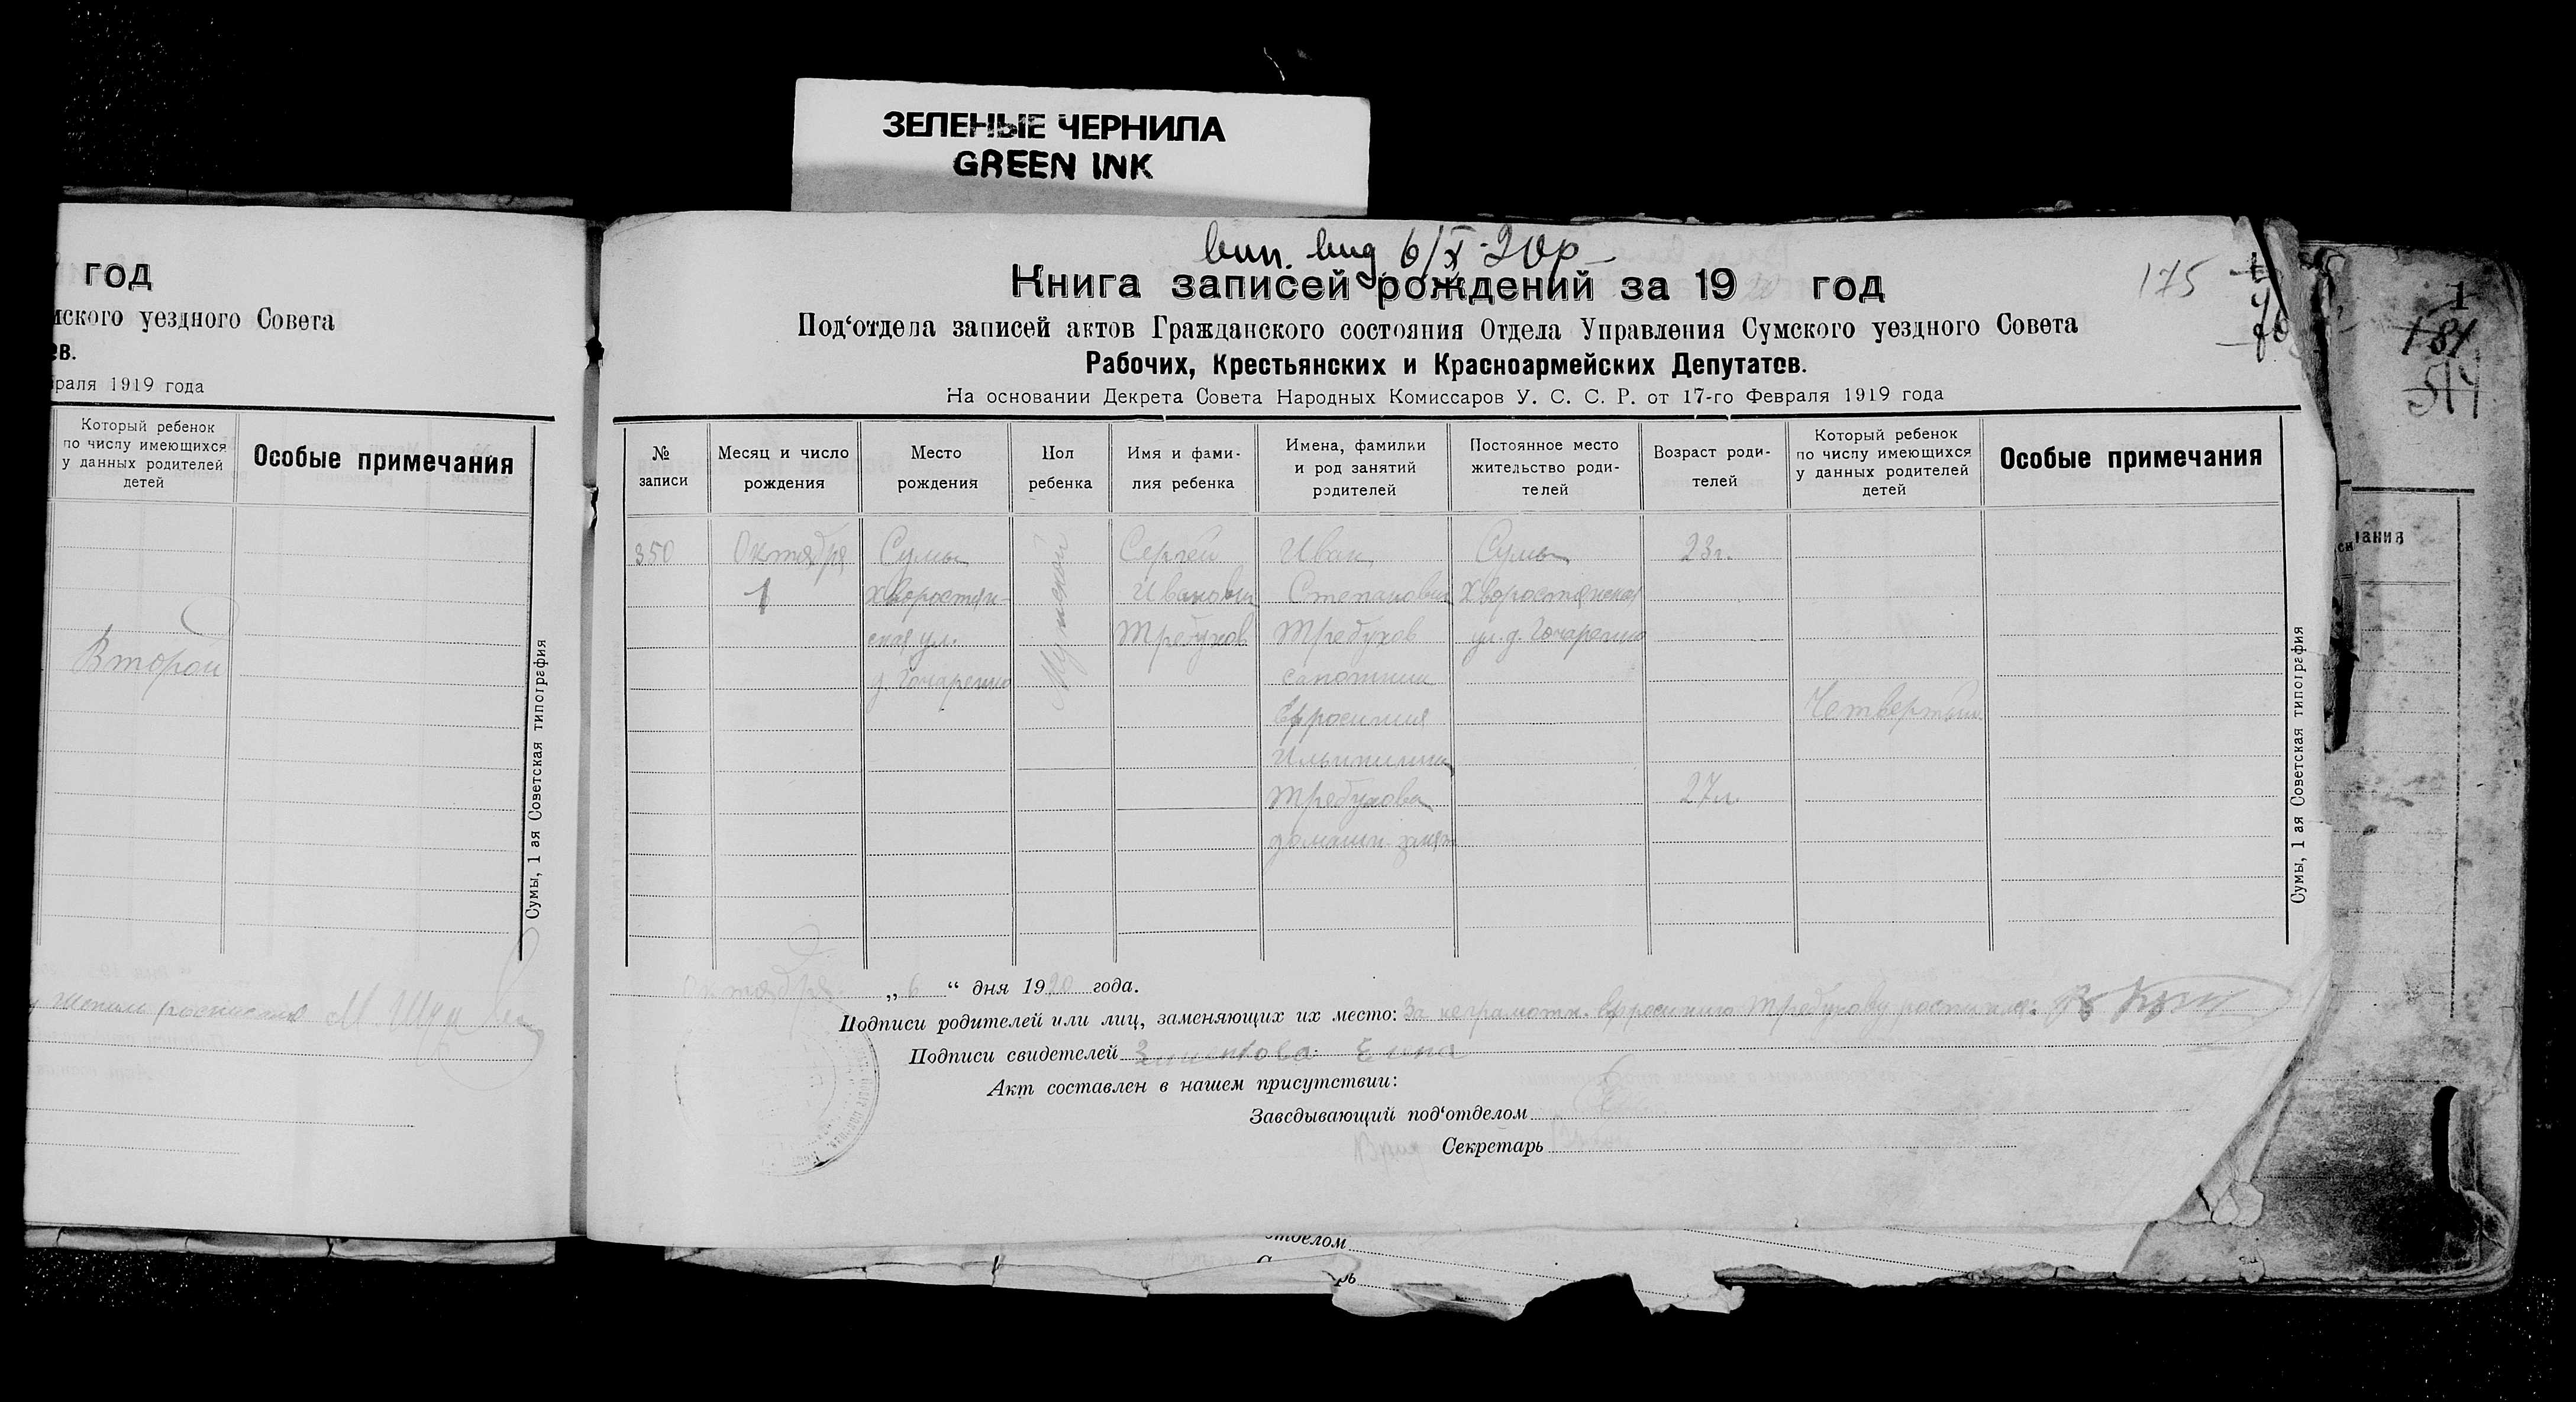 ЗЕЛЕНЫЕ ЧЕРНИЛА
GREEN INK
год
мского уездного Совета
ев.
враля 1919 года
Который ребенок
по числу имеющихся
у данных родителей
детей
Особые примечания
Второй
росписался
Сумы, 1 ая Советская типография
вип. вид 6/X-20р
Книга записей рождений за 1920 год
175
Под‘отдела записей актов Гражданского состояния Отдела Управления Сумского уездного Совета
Рабочих, Крестьянских и Красноармейских Депутатов.
На основании Декрета Совета Народных Комиссаров У. С. С. Р. от 17-го Февраля 1919 года
№
записи
Месяц и число
рождения
Место
рождения
Пол
ребенка
Имя и фами-
лия ребенка
Имена, фамилии
и род занятий
родителей
Постоянное место
жительство роди-
телей
Возраст роди-
телей
Который ребенок
по числу имеющихся
у данных родителей
детей
Особые примечания
350
Октября
1
Сумы
Хворостян-
ская ул.
д. Гончаренко
Мужской
Сергей
Иванович
Требухов
Иван
Степанович
Требухов
сапожник
Ефросиния
Ильинична
Требухова
домашн. занят
Сумы
Хворостянская
ул. д. Гончаренко
23г.
27л.
Четвертый
Сумы, 1 ая Советская типография
Октября „ 6 “ дня 1920 года.
Подписи родителей или лиц, заменяющих их место: За неграмотн. Ефросинию Требухову
Подписи свидетелей Елена
Акт составлен в нашем присутствии:
Заведывающий под‘отделом
Врид Секретарь
отделом
рь
1
181
514